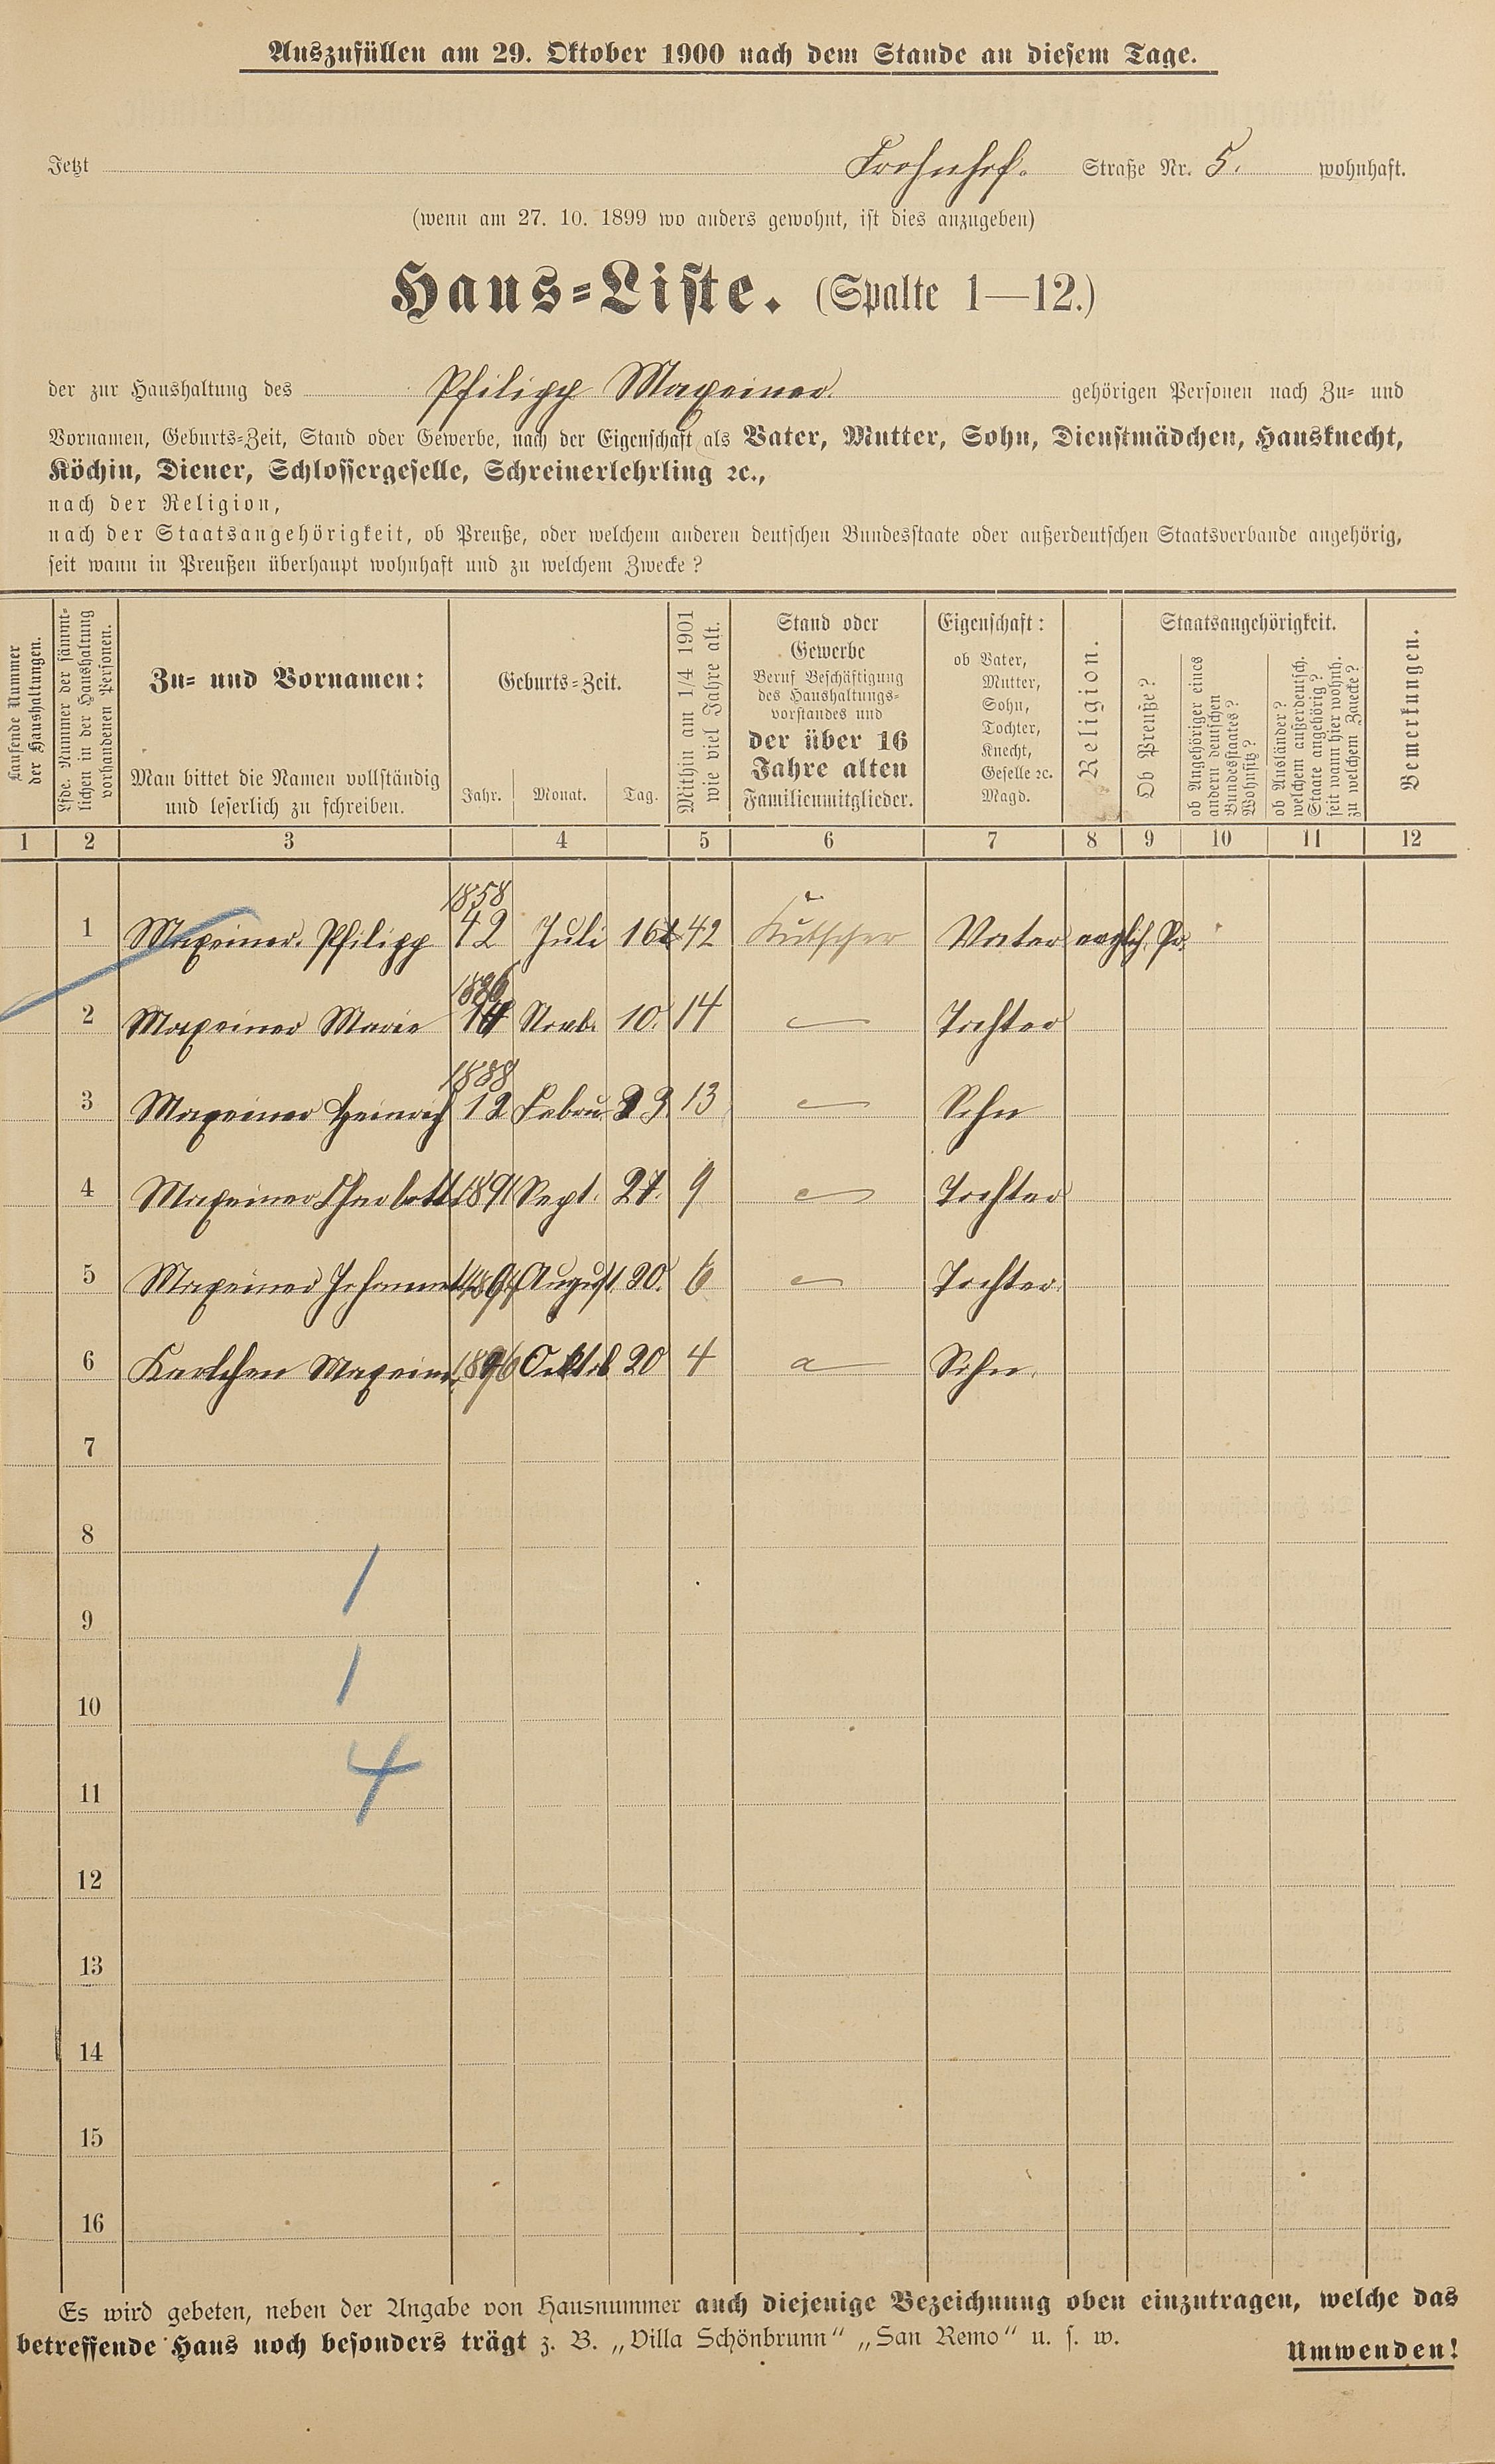 Auszufüllen am 29. Oktober 1900 nach dem Stande an diesem Tage.
Jetzt Frohnhof. Straße Nr. 5. wohnhaft.
(wenn am 27. 10. 1899 wo anders gewohnt, ist dies anzugeben)
Haus-Liste. (Spalte 1—12.)
der zur Haushaltung des Philipp Maxeiner. gehörigen Personen nach Zu- und
Vornamen, Geburts-Zeit, Stand oder Gewerbe, nach der Eigenschaft als Vater, Mutter, Sohn, Dienstmädchen, Hausknecht,
Köchin, Diener, Schlossergeselle, Schreinerlehrling ꝛc.,
nach der Religion,
nach der Staatsangehörigkeit, ob Preuße, oder welchem anderen deutschen Bundesstaate oder außerdeutschen Staatsverbande angehörig,
seit wann in Preußen überhaupt wohnhaft und zu welchem Zwecke?
Laufende Nummer
der Haushaltungen.
Lfde. Nummer der sämmt-
lichen in der Haushaltung
vorhandenen Personen.
Zu- und Vornamen:
Man bittet die Namen vollständig
und leserlich zu schreiben.
Geburts-Zeit.
Jahr. Monat. Tag.
Mithin am 1/4 1901
wie viel Jahre alt.
Stand oder
Gewerbe
Beruf Beschäftigung
des Haushaltungs-
vorstandes und
der über 16
Jahre alten
Familienmitglieder.
Eigenschaft:
ob Vater,
Mutter,
Sohn,
Tochter,
Knecht,
Geselle ꝛc.
Magd.
Religion.
Staatsangehörigkeit.
Ob Preuße?
ob Angehöriger eines
andern deutschen
Bundesstaates?
Wohnsitz?
ob Ausländer?
welchem außerdeutsch.
Staate angehörig?
seit wann hier wohnh.
zu welchem Zwecke?
Bemerkungen.
1 2 3 4 5 6 7 8 9 10 11 12
1858
1 Maxeiner. Philipp 42 Juli 16 42 Kutscher Vater Pr.
1886
2 Maxeiner Marie 14 Novb. 10. 14 Tochter
1888
3 Maxeiner Heinrich 12 Febru 13 Sohn
4 Maxeiner Charlotte 1891 Sept. 27. 9 Tochter
5 Maxeiner 1894 August. 20. 6 Tochter.
6 Karlchen Maxeiner 1896 Oktob 20 4 Sohn.
7
8
1
9
1
10
4
11
12
13
14
15
16
Es wird gebeten, neben der Angabe von Hausnummer auch diejenige Bezeichnung oben einzutragen, welche das
betreffende Haus noch besonders trägt z. B. „Villa Schönbrunn“ „San Remo“ u. s. w.
Umwenden!